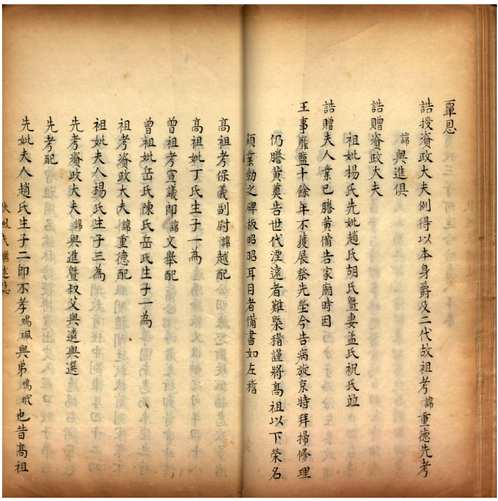 覃恩
誥授資政大夫例得以本身爵及二代故祖考諱重德先考
諱興進俱
誥贈資政大夫
祖妣楊氏先妣趙氏胡氏暨妻孟氏祝氏竝
誥贈夫人業已謄黃備告家廟時因
王事靡盬十餘年不獲展祭先塋今告病旋京特拜掃修理
仍謄黃奠告世代湮遠者難槩指謹將高祖以下榮名
碩業勒之碑版昭昭耳目者備書如左
高祖考保義副尉諱越配
高祖妣丁氏生子一為
曾祖考宣義郎諱文舉配
曾祖妣岳氏陳氏岳氏生子一為
祖考資政大夫諱重德配
祖妣夫人楊氏生子三為
先考資政大夫諱興進暨叔父興遠興選
先考配
先妣夫人趙氏生子二即不孝鳴珮與弟鳴 也昔高祖